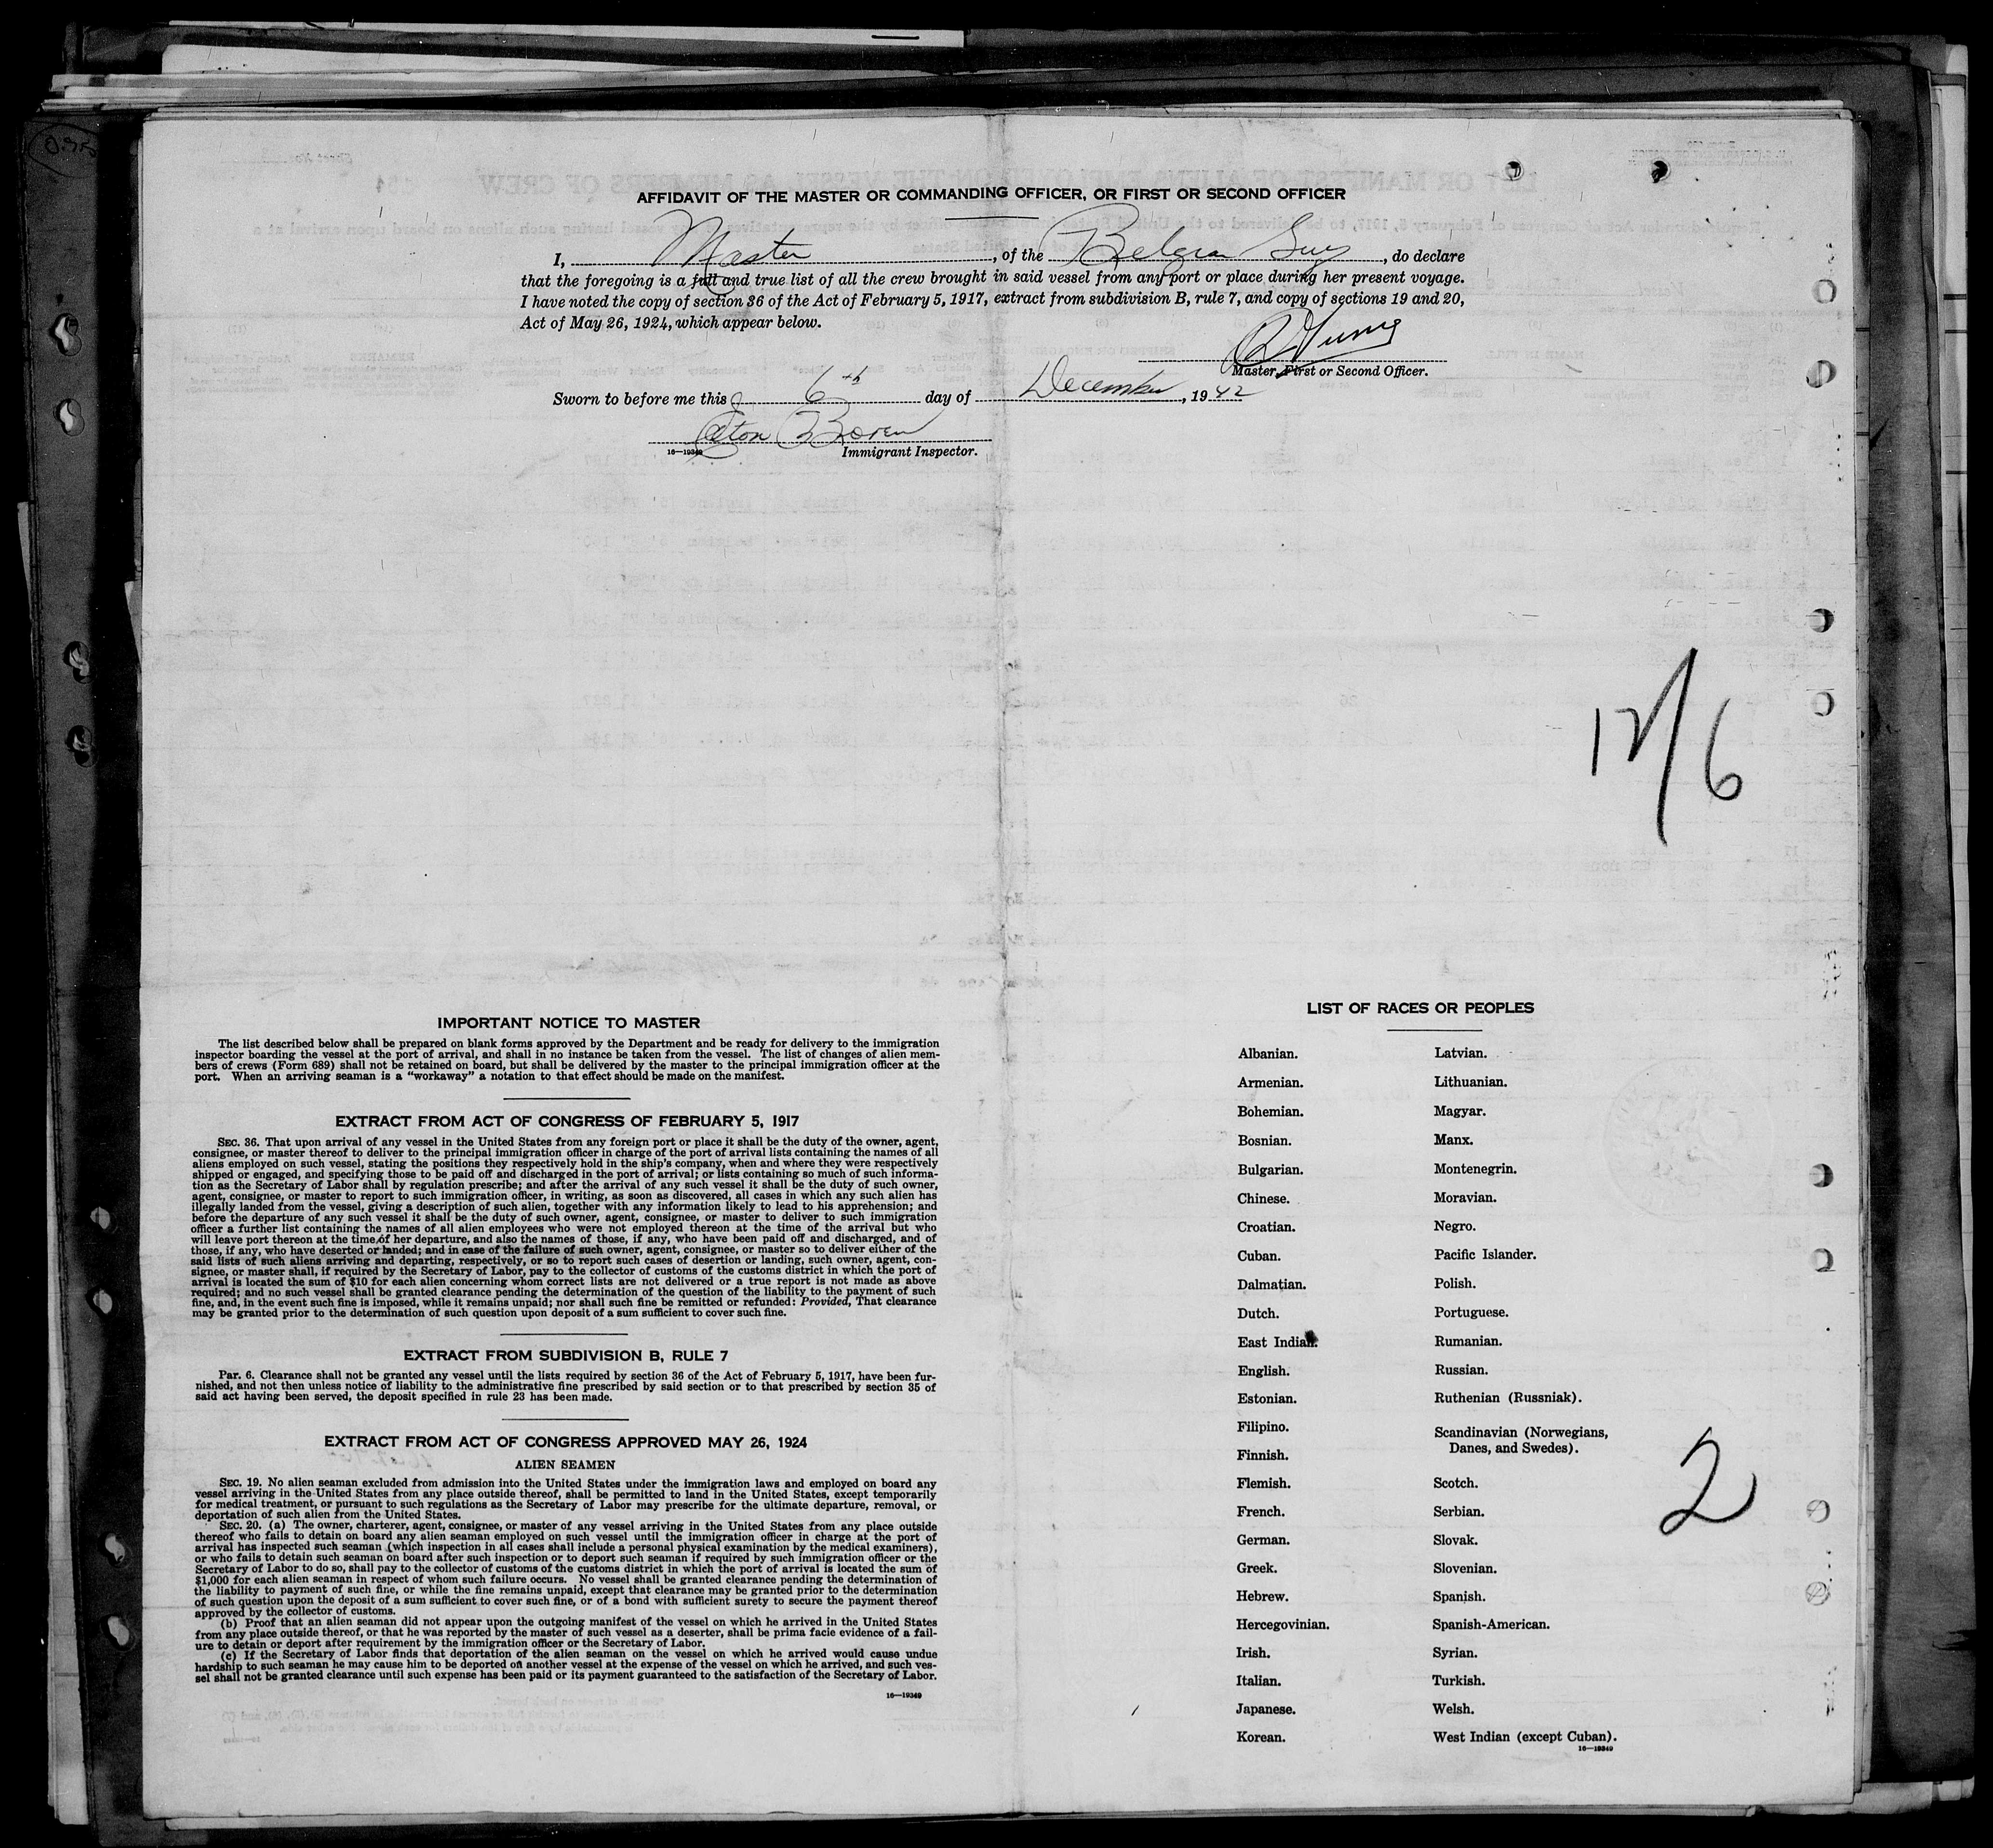 AFFIDAVIT OF THE MASTER OR COMMANDING OFFICER, OR FIRST OR SECOND OFFICER
I, Master, of the Belgian, do declare
that the foregoing is a full and true list of all the crew brought in said vessel from any port or place during her present voyage.
I have noted the copy of section 36 of the Act of February 5, 1917, extract from subdivision B, rule 7, and copy of sections 19 and 20,
Act of May 26, 1924, which appear below.
Master, First or Second Officer.
Sworn to before me this 6th day of December, 1942
16—19349 Immigrant Inspector.
12/6
IMPORTANT NOTICE TO MASTER
The list described below shall be prepared on blank forms approved by the Department and be ready for delivery to the immigration
inspector boarding the vessel at the port of arrival, and shall in no instance be taken from the vessel. The list of changes of alien mem-
bers of crews (Form 689) shall not be retained on board, but shall be delivered by the master to the principal immigration officer at the
port. When an arriving seaman is a "workaway" a notation to that effect should be made on the manifest.
EXTRACT FROM ACT OF CONGRESS OF FEBRUARY 5, 1917
SEC. 36. That upon arrival of any vessel in the United States from any foreign port or place it shall be the duty of the owner, agent,
consignee, or master thereof to deliver to the principal immigration officer in charge of the port of arrival lists containing the names of all
aliens employed on such vessel, stating the positions they respectively hold in the ship's company, when and where they were respectively
shipped or engaged, and specifying those to be paid off and discharged in the port of arrival; or lists containing so much of such informa-
tion as the Secretary of Labor shall by regulation prescribe; and after the arrival of any such vessel it shall be the duty of such owner,
agent, consignee, or master to report to such immigration officer, in writing, as soon as discovered, all cases in which any such alien has
illegally landed from the vessel, giving a description of such alien, together with any information likely to lead to his apprehension; and
before the departure of any such vessel it shall be the duty of such owner, agent, consignee, or master to deliver to such immigration
officer a further list containing the names of all alien employees who were not employed thereon at the time of the arrival but who
will leave port thereon at the time of her departure, and also the names of those, if any, who have been paid off and discharged, and of
those, if any, who have deserted or landed; and in case of the failure of such owner, agent, consignee, or master so to deliver either of the
said lists of such aliens arriving and departing, respectively, or so to report such cases of desertion or landing, such owner, agent, con-
signee, or master shall, if required by the Secretary of Labor, pay to the collector of customs of the customs district in which the port of
arrival is located the sum of $10 for each alien concerning whom correct lists are not delivered or a true report is not made as above
required; and no such vessel shall be granted clearance pending the determination of the question of the liability to the payment of such
fine, and, in the event such fine is imposed, while it remains unpaid; nor shall such fine be remitted or refunded: Provided, That clearance
may be granted prior to the determination of such question upon deposit of a sum sufficient to cover such fine.
EXTRACT FROM SUBDIVISION B, RULE 7
Par. 6. Clearance shall not be granted any vessel until the lists required by section 36 of the Act of February 5, 1917, have been fur-
nished, and not then unless notice of liability to the administrative fine prescribed by said section or to that prescribed by section 35 of
said act having been served, the deposit specified in rule 23 has been made.
EXTRACT FROM ACT OF CONGRESS APPROVED MAY 26, 1924
ALIEN SEAMEN
SEC. 19. No alien seaman excluded from admission into the United States under the immigration laws and employed on board any
vessel arriving in the United States from any place outside thereof, shall be permitted to land in the United States, except temporarily
for medical treatment, or pursuant to such regulations as the Secretary of Labor may prescribe for the ultimate departure, removal, or
deportation of such alien from the United States.
SEC. 20. (a) The owner, charterer, agent, consignee, or master of any vessel arriving in the United States from any place outside
thereof who fails to detain on board any alien seaman employed on such vessel until the immigration officer in charge at the port of
arrival has inspected such seaman (which inspection in all cases shall include a personal physical examination by the medical examiners),
or who fails to detain such seaman on board after such inspection or to deport such seaman if required by such immigration officer or the
Secretary of Labor to do so, shall pay to the collector of customs of the customs district in which the port of arrival is located the sum of
$1,000 for each alien seaman in respect of whom such failure occurs. No vessel shall be granted clearance pending the determination of
the liability to payment of such fine, or while the fine remains unpaid, except that clearance may be granted prior to the determination
of such question upon the deposit of a sum sufficient to cover such fine, or of a bond with sufficient surety to secure the payment thereof
approved by the collector of customs.
(b) Proof that an alien seaman did not appear upon the outgoing manifest of the vessel on which he arrived in the United States
from any place outside thereof, or that he was reported by the master of such vessel as a deserter, shall be prima facie evidence of a fail-
ure to detain or deport after requirement by the immigration officer or the Secretary of Labor.
(c) If the Secretary of Labor finds that deportation of the alien seaman on the vessel on which he arrived would cause undue
hardship to such seaman he may cause him to be deported on another vessel at the expense of the vessel on which he arrived, and such ves-
sel shall not be granted clearance until such expense has been paid or its payment guaranteed to the satisfaction of the Secretary of Labor.
16—19349
LIST OF RACES OR PEOPLES
Albanian.
Armenian.
Bohemian.
Bosnian.
Bulgarian.
Chinese.
Croatian.
Cuban.
Dalmatian.
Dutch.
East Indian.
English.
Estonian.
Filipino.
Finnish.
Flemish.
French.
German.
Greek.
Hebrew.
Hercegovinian.
Irish.
Italian.
Japanese.
Korean.
Latvian.
Lithuanian.
Magyar.
Manx.
Montenegrin.
Moravian.
Negro.
Pacific Islander.
Polish.
Portuguese.
Rumanian.
Russian.
Ruthenian (Russniak).
Scandinavian (Norwegians,
Danes, and Swedes).
Scotch.
Serbian.
Slovak.
Slovenian.
Spanish.
Spanish-American.
Syrian.
Turkish.
Welsh.
West Indian (except Cuban).
16—19349
2